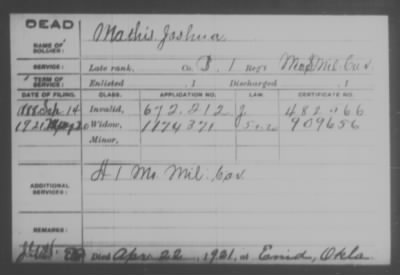 DEAD
NAME OF SOLDIER: Mathis, Joshua
SERVICE: Late rank, Co. B, 1 Reg't Mo. S. Mil. Cav.
TERM OF SERVICE: Enlisted , 1 Discharged , 1
DATE OF FILING. CLASS. APPLICATION NO. LAW. CERTIFICATE NO.
1888 Sep. 14 Invalid, 672.212 J 482 966
1921 20 Widow, 1174371 909656
Minor,
ADDITIONAL SERVICES: H 1 Mo. Mil. Cav.
REMARKS:
Died Apr 22, 1921, at Enid, Okla.